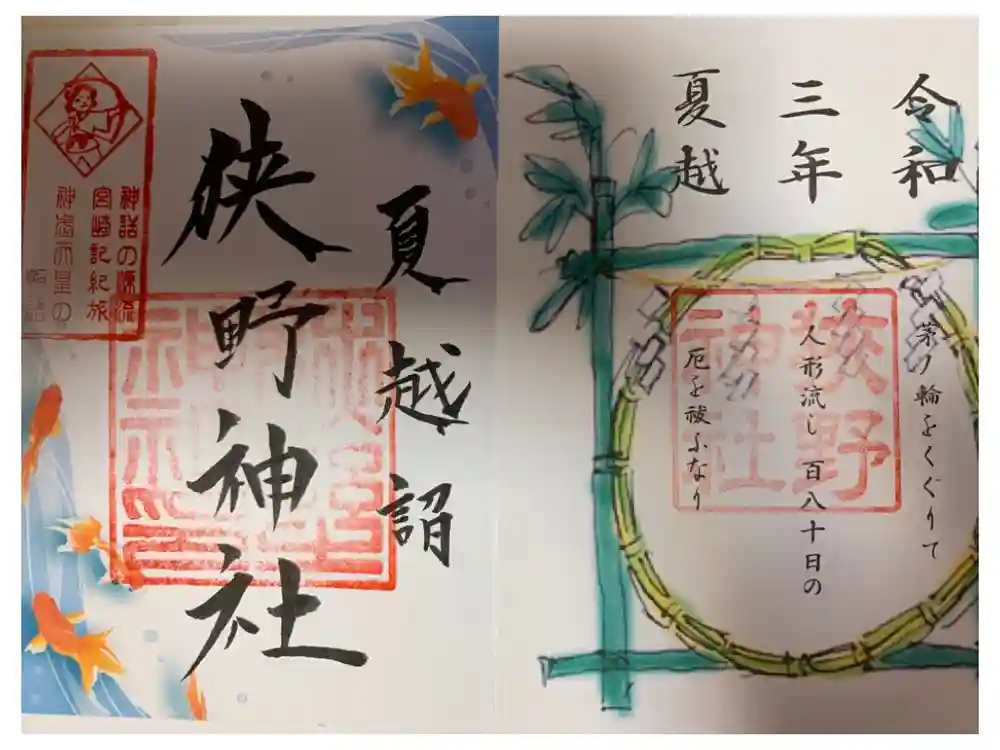 夏越詣
狹野神社
神話の源流
宮崎記紀旅
令和
三年
夏越
茅ノ輪をくぐりて
人形流し 百八十日の
厄を祓ふなり
狹野
神社